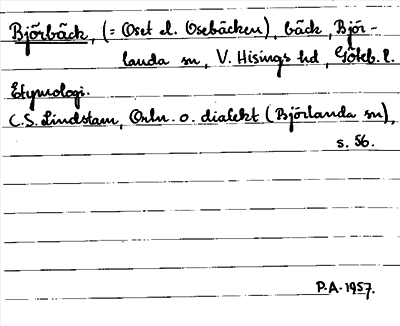 Björbäck, (= Oset el. Osebäcken), bäck, Björ-
landa sn, V. Hisings hd, Göteb. l.
Etymologi.
C.S. Lindstam, Ortn. o. dialekt (Björlanda sn),
s. 56.
P.A. 1957.